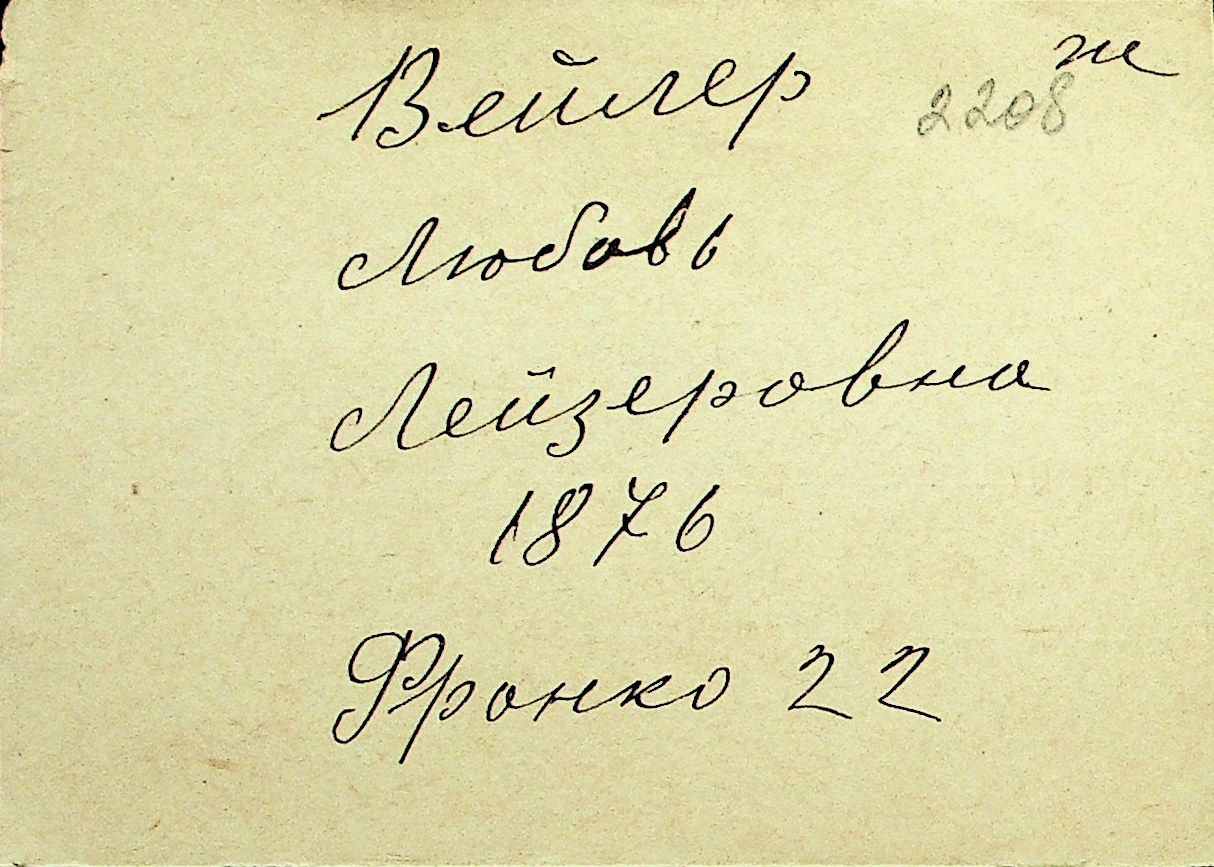 Вейлер ж
2208
Любовь
Лейзеровна
1876
Фронко 22